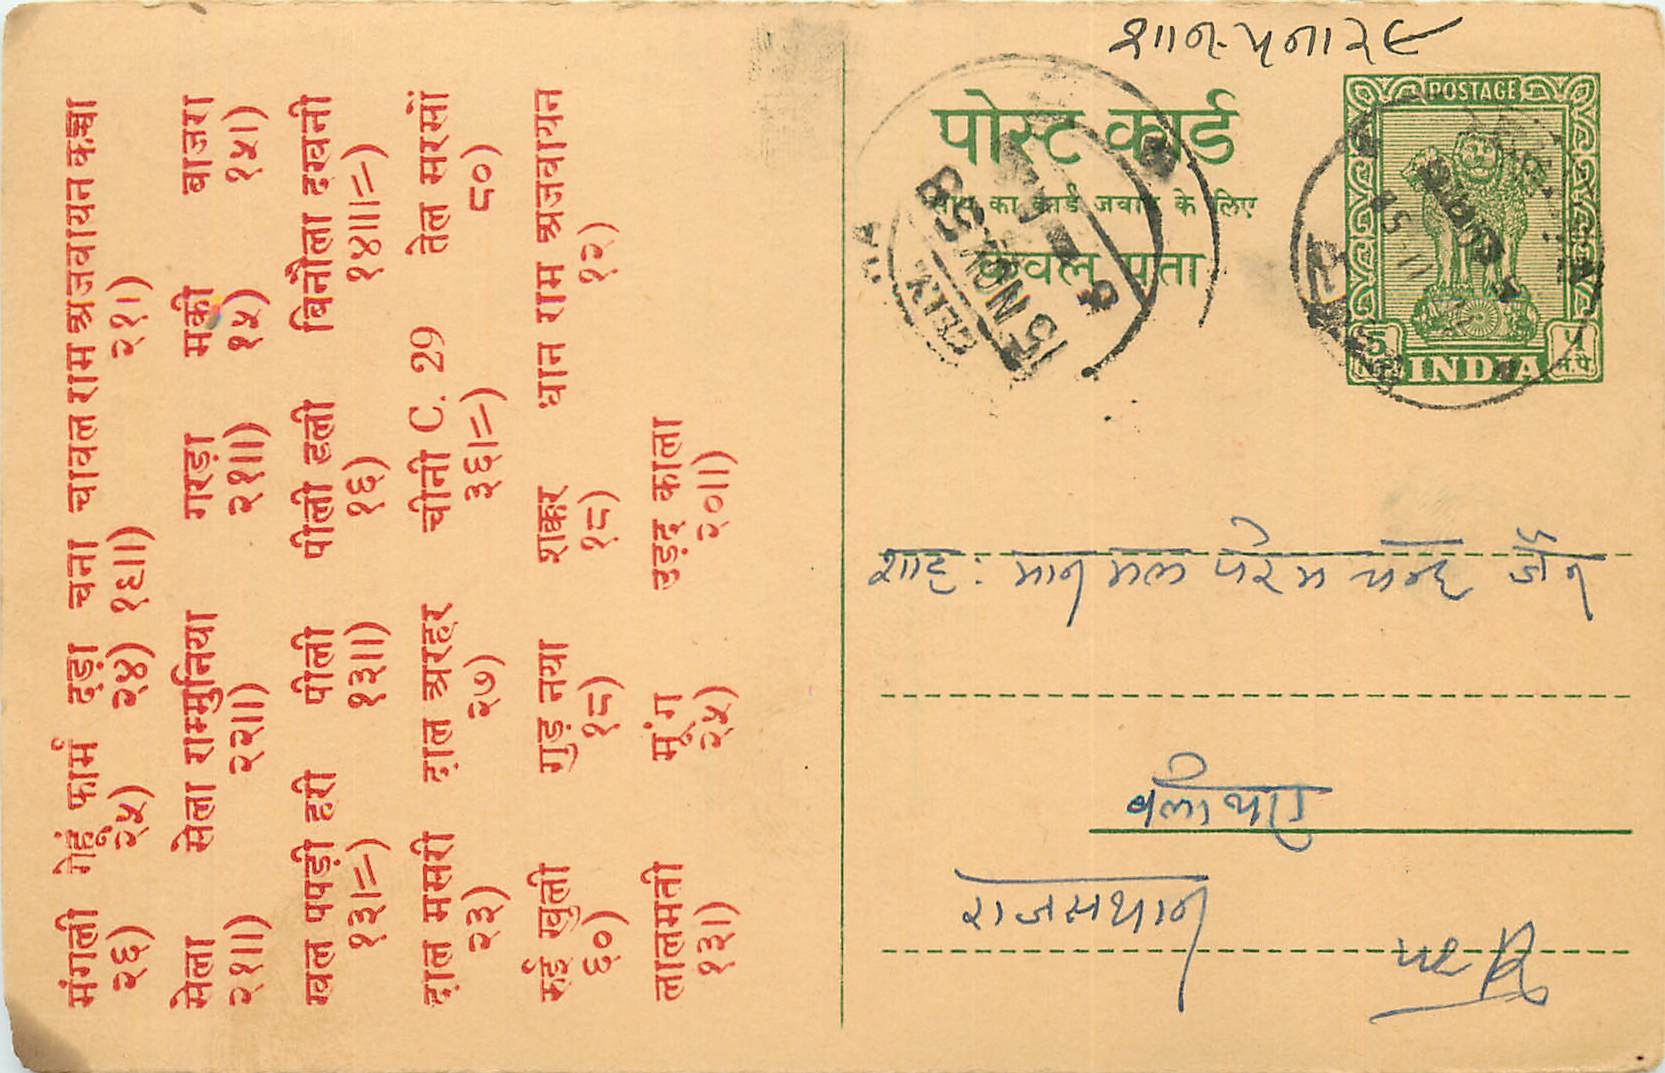 मंगली गेहूं फार्म दड़ा चना चावल राम अजवायन कच्चा
२६) २५) २४) १६॥) २१।)
सेला सेला राममुनिया गरड़ा मकी बाजरा
२१॥) २२॥) २१॥) १५) १५।)
खल पपड़ी हरी पीली पीली डली बिनौला दखनी
१३।=) १३॥) १६) १४॥।=)
दाल मसरी दाल अरहर चीनी C. 29 तेल सरसों
२३) २७) ३६।=) ८०)
रुई खुली गुड़ नया शक्कर धान राम अजवायन
६०) १८) १८) १२)
लालमती मूंग उड़द काला
१३।) २५) २०॥)
पोस्ट कार्ड
का कार्ड जवाब के लिए
केवल पता
POSTAGE
5 INDIA ५
न.पै.
15 NOV 58
शाह: मान मल चन्द जैन
राजसथान